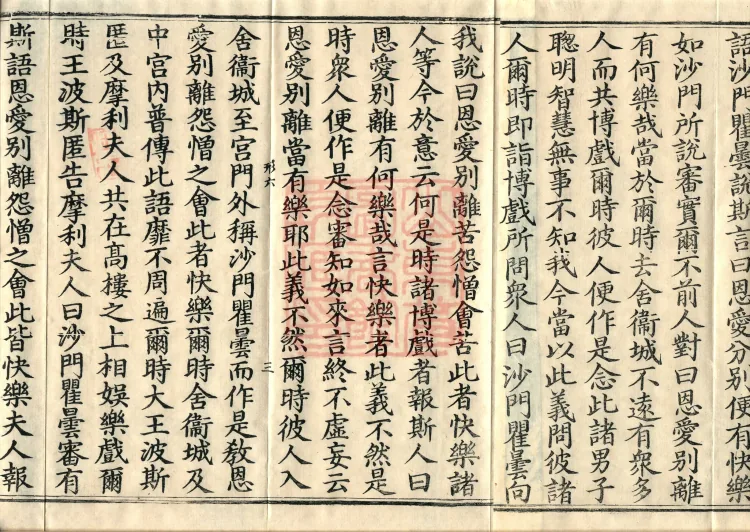 語沙門瞿曇說斯言曰恩愛分別便有快樂
如沙門所說審實爾不前人對曰恩愛別離
有何樂哉當於爾時去舍衞城不遠有衆多
人而共博戲爾時彼人便作是念此諸男子
聰明智慧無事不知我今當以此義問彼諸
人爾時即詣博戲所問衆人曰沙門瞿曇向
我說曰恩愛別離苦怨憎會苦此者快樂諸
人等今於意云何是時諸博戲者報斯人曰
恩愛別離有何樂哉言快樂者此義不然是
時衆人便作是念審知如來言終不虛妄云
恩愛別離當有樂耶此義不然爾時彼人入
形六 三
舍衞城至宮門外稱沙門瞿曇而作是教恩
愛別離怨憎之會此者快樂爾時舍衞城及
中宮內普傳此語靡不周遍爾時大王波斯
匿及摩利夫人共在高樓之上相娛樂戲爾
時王波斯匿告摩利夫人曰沙門瞿曇審有
斯語恩愛別離怨憎之會此皆快樂夫人報